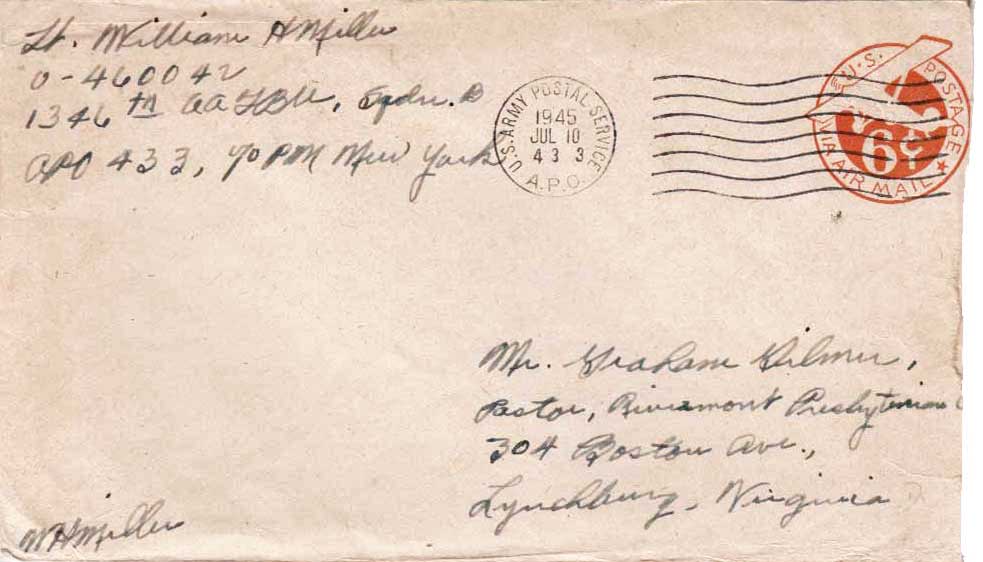 Lt. William H Miller
O-460042
1346 th AAFBU, Sqdn. B
APO 433, % PM New York
U.S. ARMY POSTAL SERVICE
1945
JUL 10
4 3 3
A.P.O.
U.S. POSTAGE
6¢
VIA AIR MAIL
Mr. Graham Gilmer,
Pastor, Rivermont Presbyterian C
304 Boston Ave.,
Lynchburg, Virginia
WHMiller